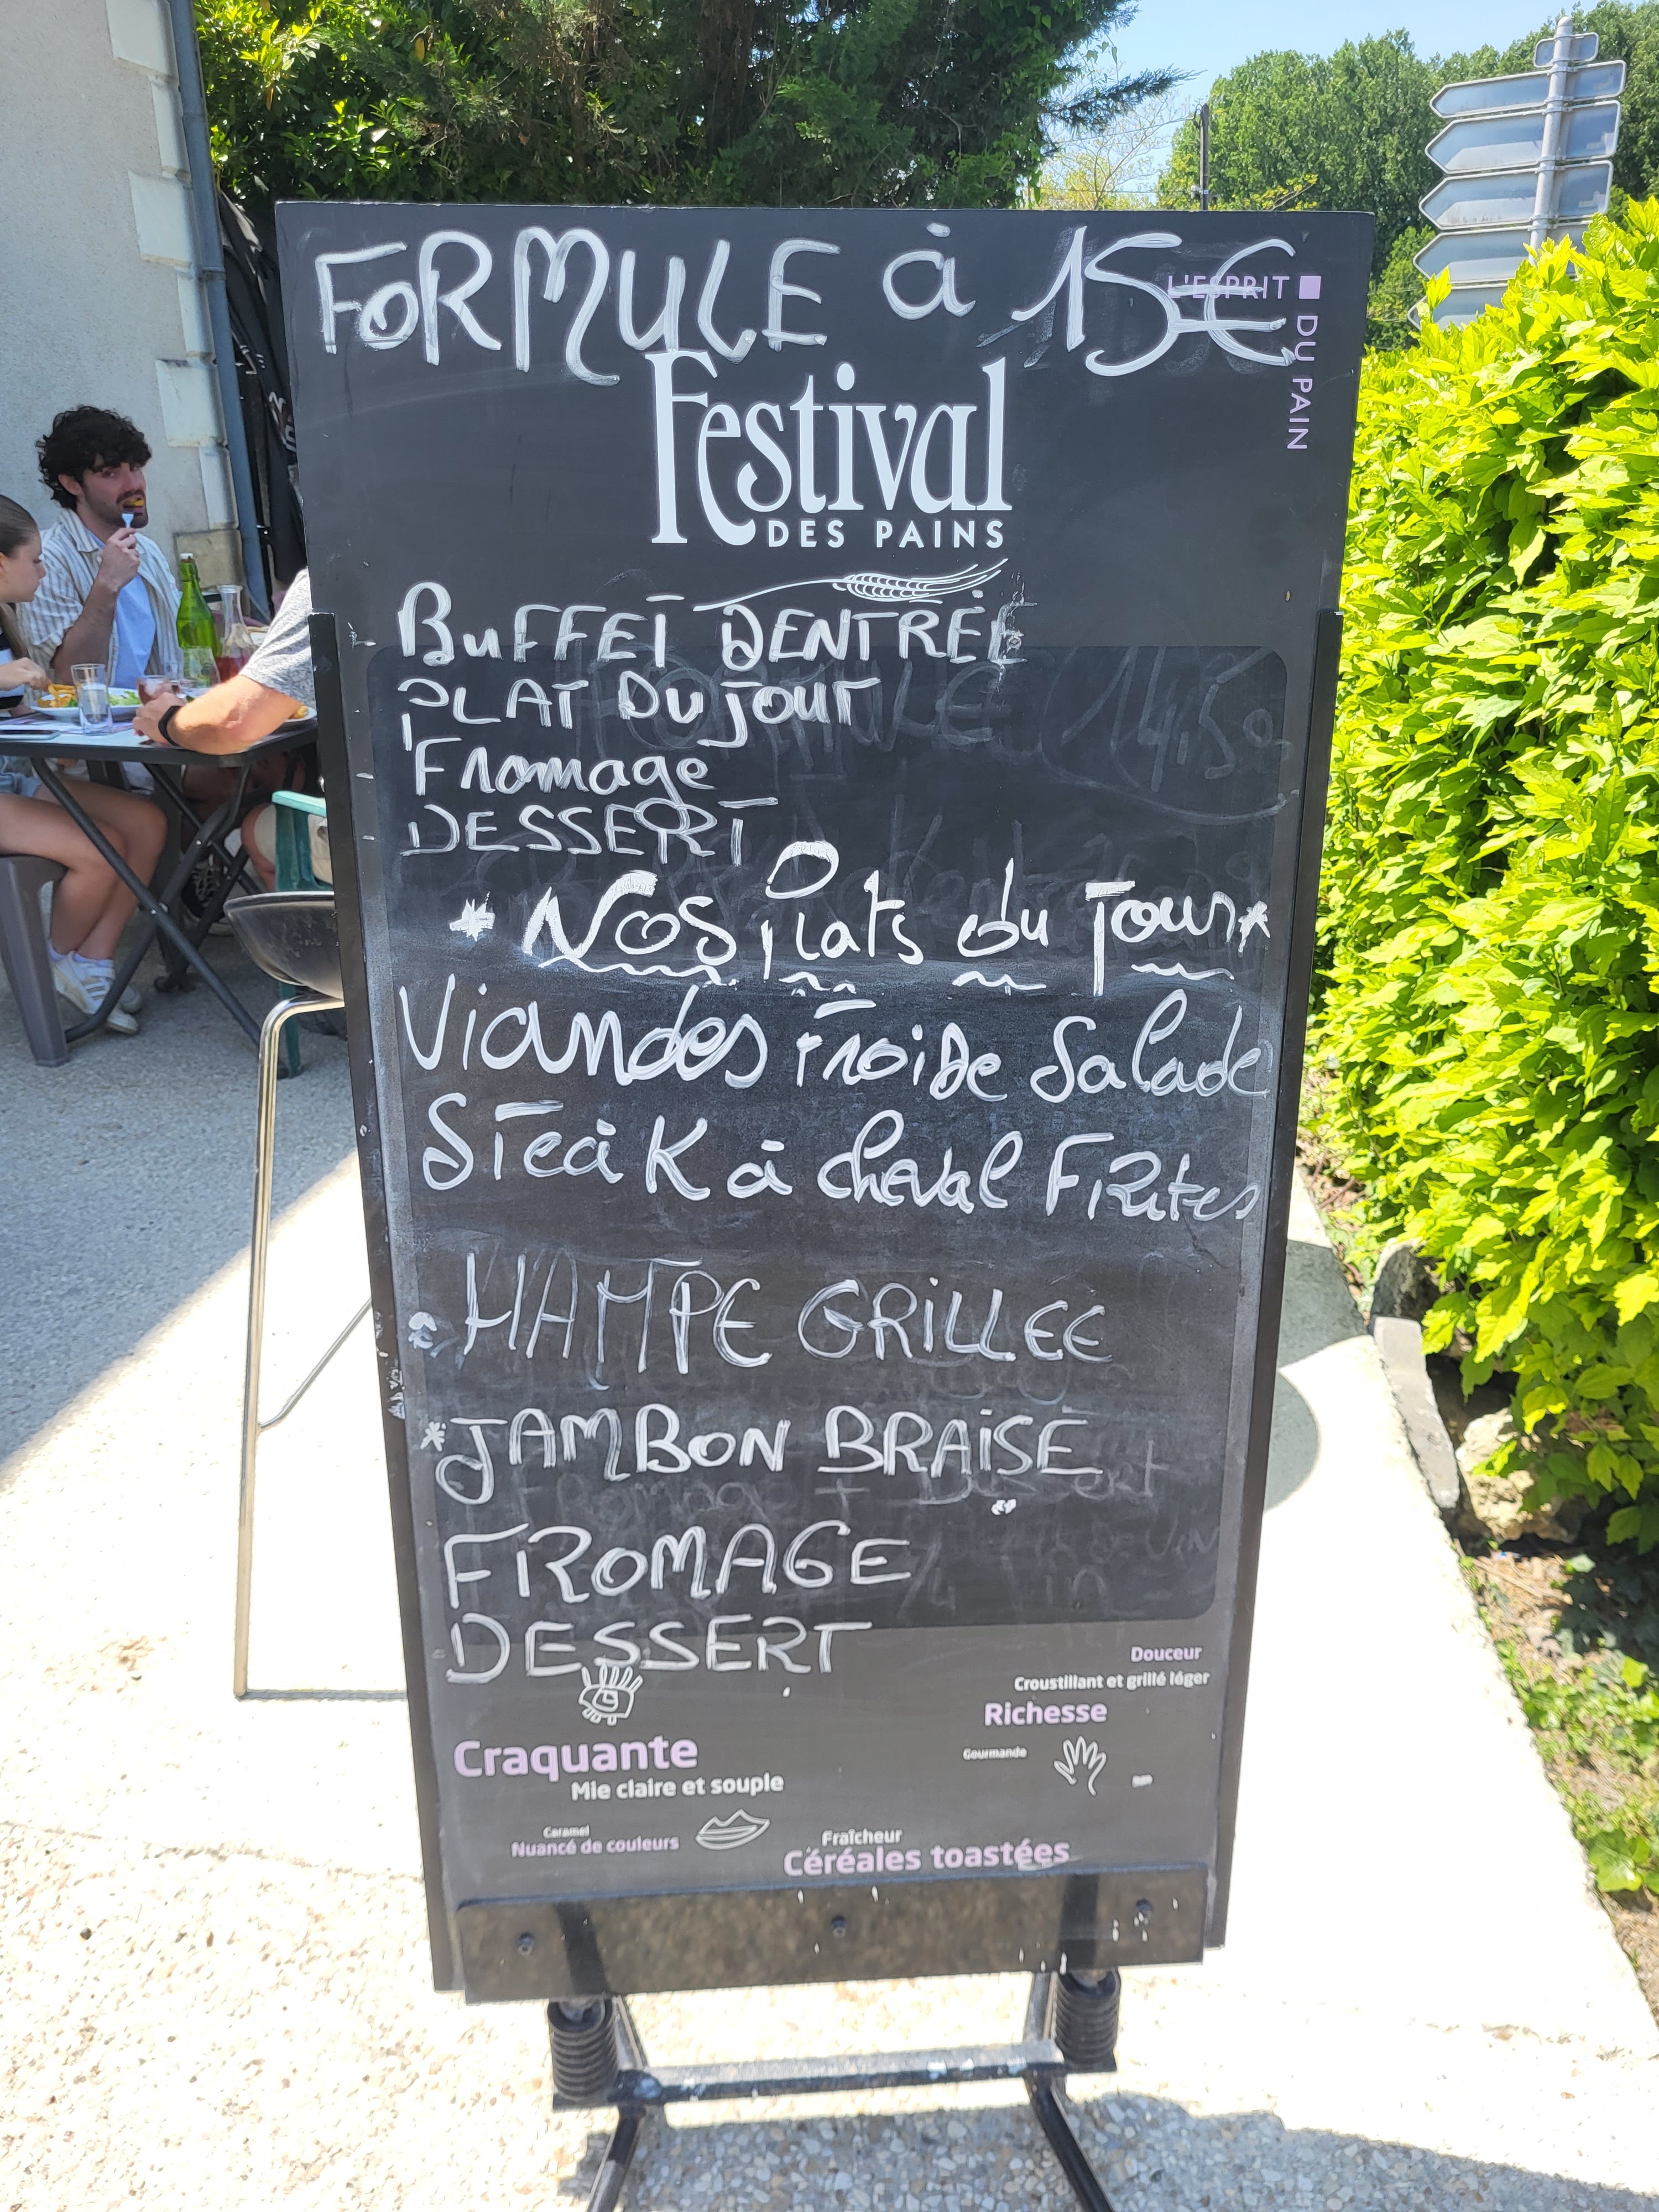 FORMULE à 15€
L'ESPRIT
DU PAIN
Festival
DES PAINS
BUFFET DENTRÉE
PLAT DU JOUR
Fromage
DESSERT
* Nos plats du Jour *
Viandes Froide Salade
Steak à cheval Frites
HAMPE GRILLEE
*JAMBON BRAiSE
FROMAGE
DESSERT
Douceur
Croustillant et grillé léger
Richesse
Gourmande
Craquante
Mie claire et souple
Caramel
Nuancé de couleurs
Fraîcheur
Céréales toastées